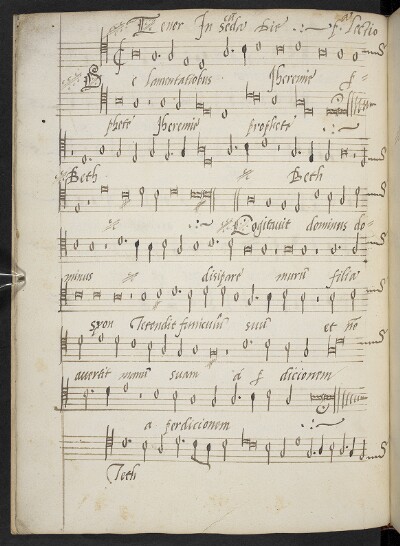 Tener In scda die pa lectio
De lamentationibus Iheremie p
phete Iheremie prophete
Beth Beth
Cogitavit dominus do
minus disipare murū filia
syon Tetendit funiculū suū et nō
avertit manū suam a p dicionem
a perdicionem
Teth